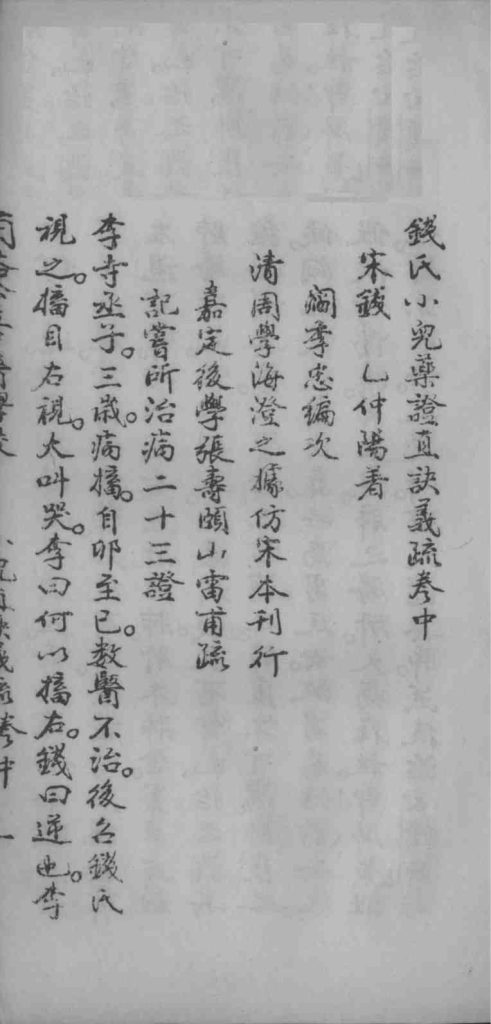 錢氏小兒藥證直訣義疏卷中
宋錢 乙仲陽著
閻孝忠編次
清周學海澄之據仿宋本刊行
嘉定後學張壽頤山雷甫疏
記嘗所治病二十三證
李寺丞子。三歲。病搐。自卯至巳。數醫不治。後召錢氏
視之。搐目右視。大叫哭。李曰何以搐右。錢曰逆也。李
小兒直訣義疏卷中 一